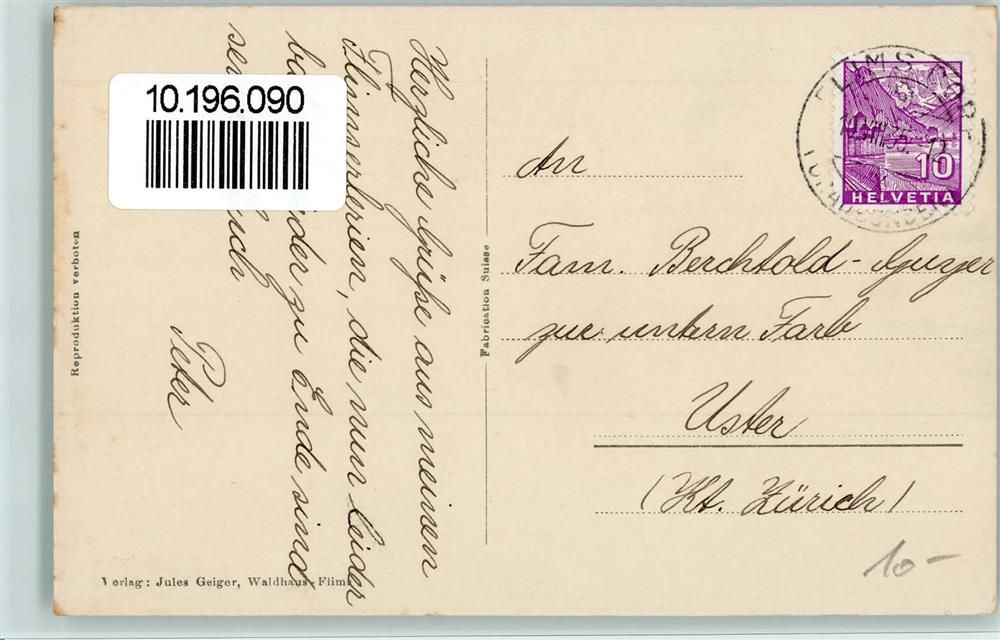 10.196.090
Herzliche Grüße aus meinen
Flimserferien, die nun leider
zu Ende sind
Peter
Reproduktion verboten
Verlag: Jules Geiger, Waldhaus-Flims
Fabrication Suisse
FLIMS DORF
(GRAUBÜNDEN)
10
HELVETIA
An
Fam. Berchtold-Gujer
zur untern Farb
Uster
(Kt. Zürich)
10-